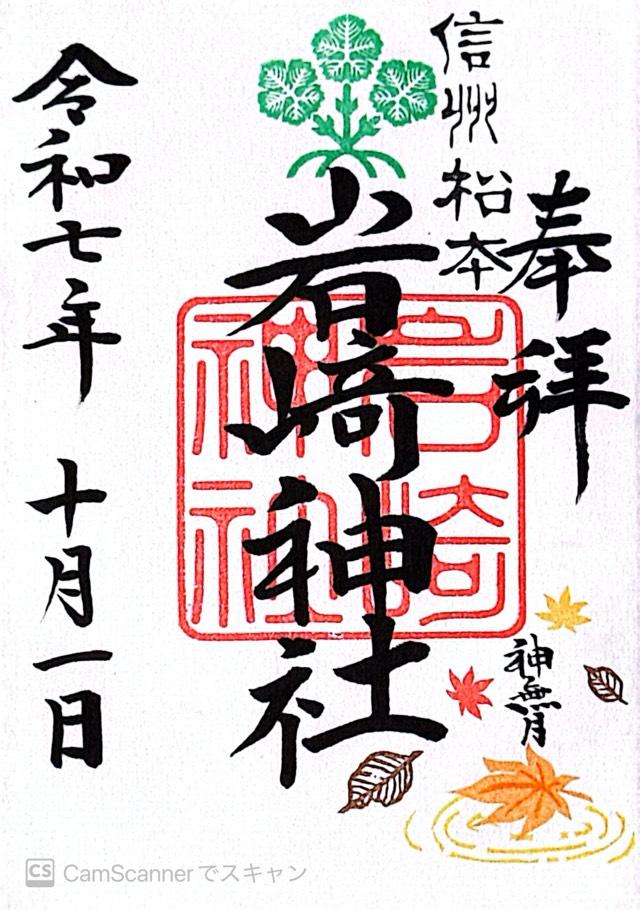 奉拝
信州松本
岩崎神社
岩崎
神社
神無月
令和七年 十月一日
CS CamScannerでスキャン